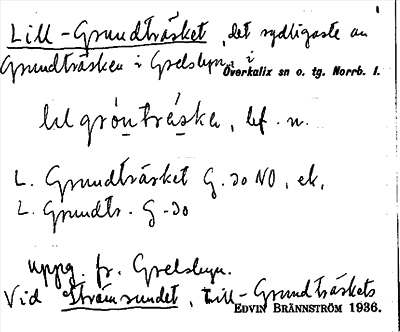 Lill-Grundträsket, det sydligaste av
Grundträsken i Grelsbyn i
Överkalix sn o. tg. Norrb. l.
lilgrόnträska, bf. n.
L. Grundträsket G. 30 NO, ek.
L. Grundtr. G-30
uppg. fr. Grelsbyn.
Vid Strömsundet, Lill-Grundträskets
EDVIN BRÄNNSTRÖM 1936.